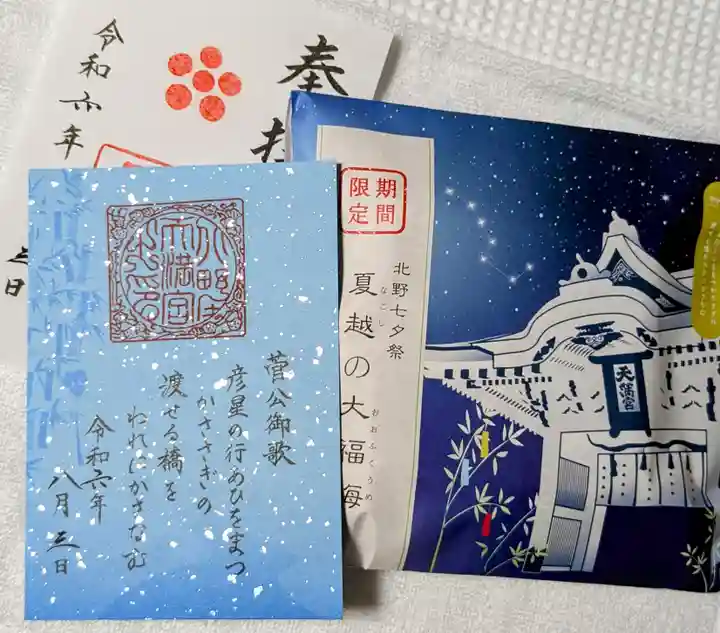 奉
令和六年
三日
菅公御歌
彦星の行あひをまつ
かささぎの
渡せる橋を
われにかさなむ
令和六年
八月三日
期間
限定
北野七夕祭
なごし
おおふくうめ
夏越の大福梅
天満宮